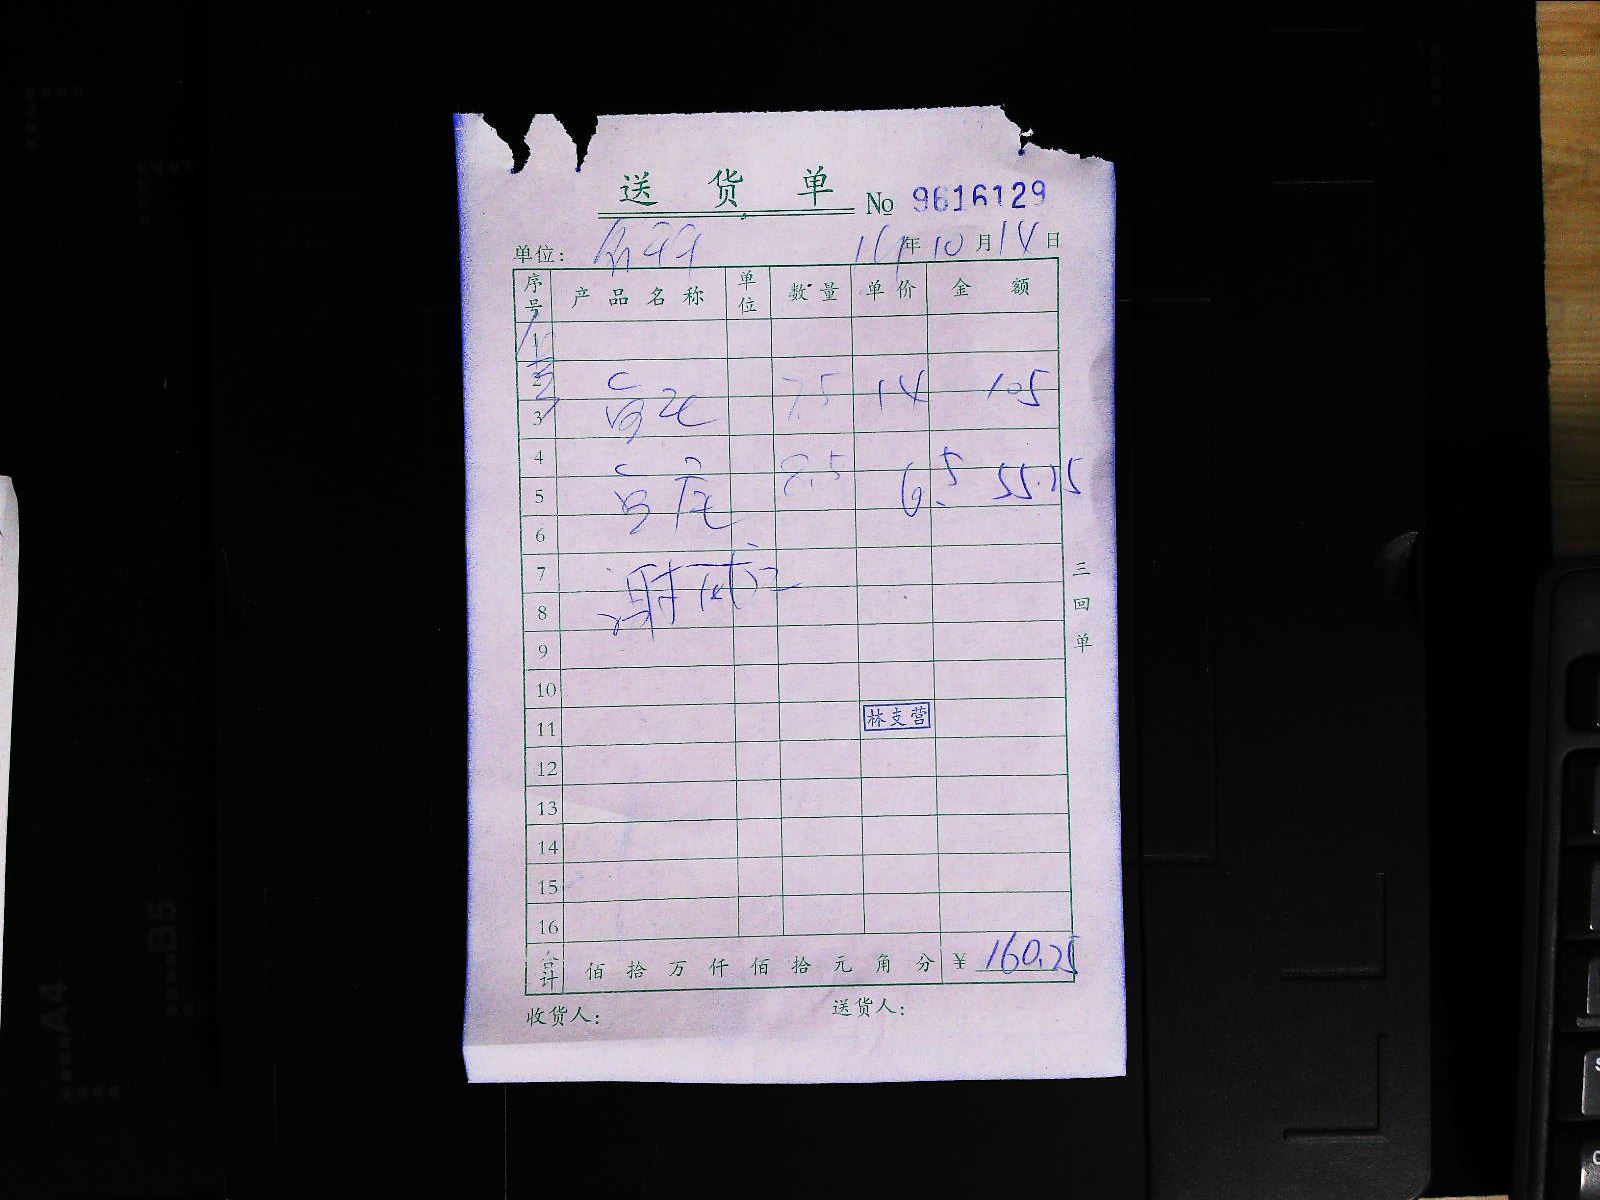 送 货 单 № 9616129
单位: 年 10 月 14 日
序号 产品名称 单位 数量 单价 金额
1
2 7.5 14 105
3
4
5 8.5 6.5 55.25
6
7
8
9
10
11 林支营
12
13
14
15
16
合计 佰 拾 万 仟 佰 拾 元 角 分 ¥ 160.25
收货人: 送货人:
三回单
B5
A4